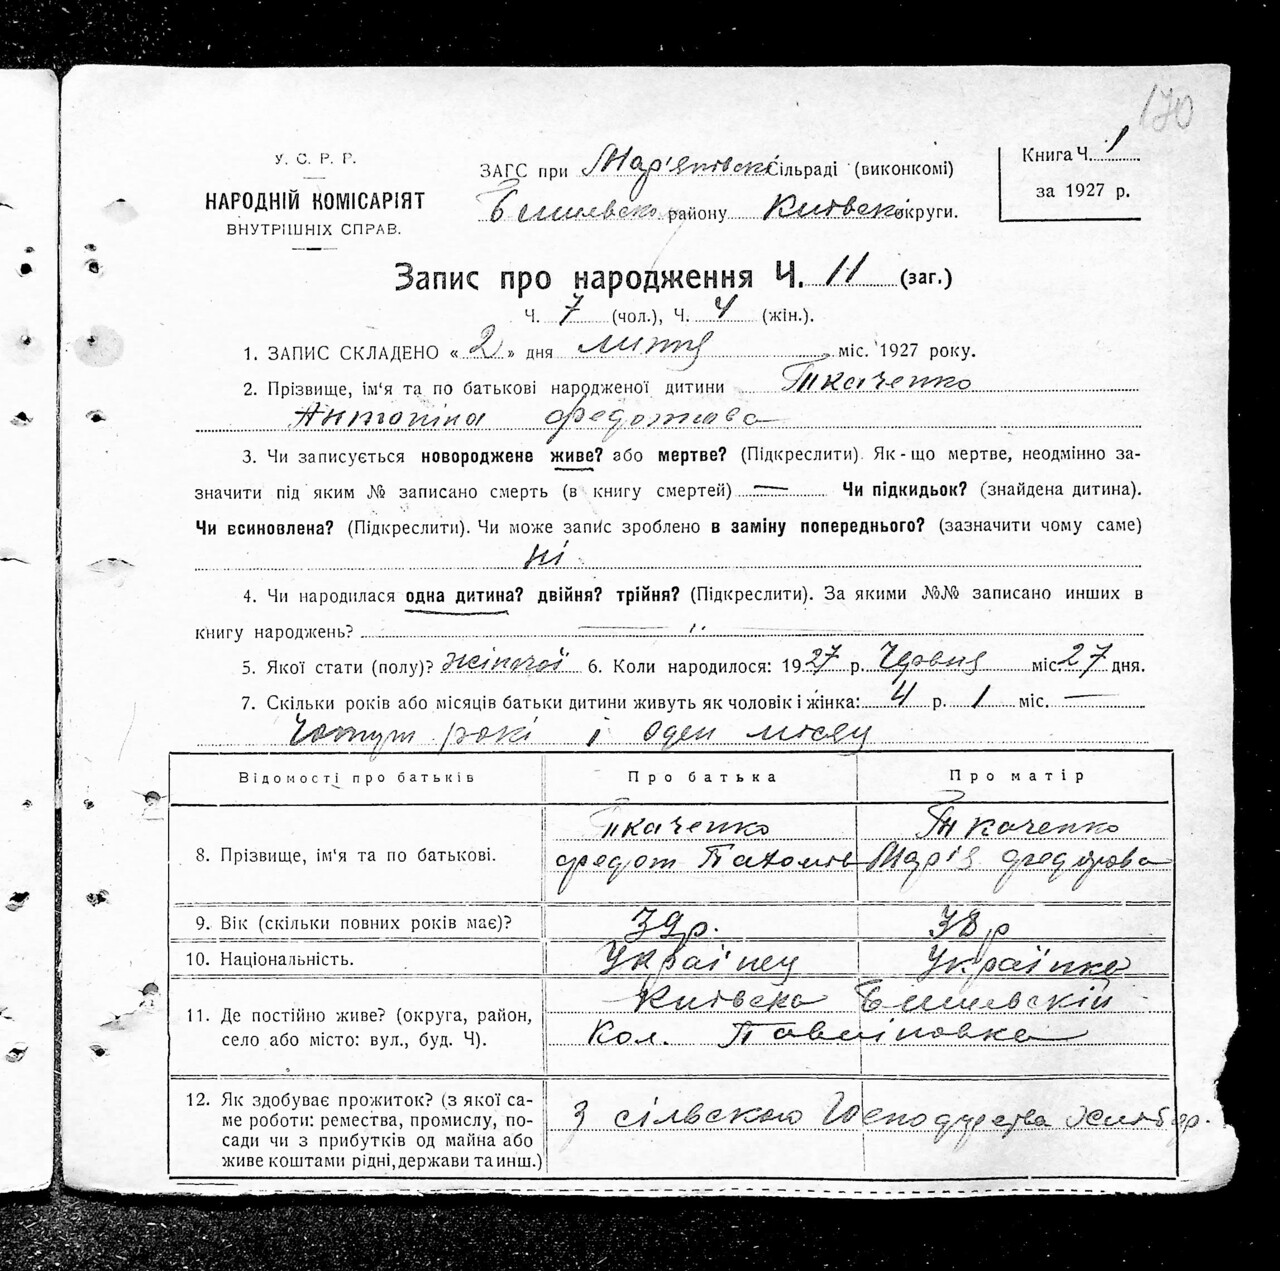 170
У. С. Р. Р.
НАРОДНІЙ КОМІСАРІЯТ
ВНУТРІШНІХ СПРАВ.
ЗАГС при Мар'янівскі Сільраді (виконкомі)
району Київско округи.
Книга Ч. 1
за 1927 р.
Запис про народження Ч. 11 (заг.)
Ч. 7 (чол.), Ч. 4 (жін.).
1. ЗАПИС СКЛАДЕНО « 2 » дня липня міс. 1927 року.
2. Прізвище, ім'я та по батькові народженої дитини Ткаченко
Антоніна Федотова
3. Чи записується новороджене живе? або мертве? (Підкреслити). Як-що мертве, неодмінно за-
значити під яким № записано смерть (в книгу смертей) — Чи підкидьок? (знайдена дитина).
Чи всиновлена? (Підкреслити). Чи може запис зроблено в заміну попереднього? (зазначити чому саме)
ні
4. Чи народилася одна дитина? двійня? трійня? (Підкреслити). За якими №№ записано инших в
книгу народжень?
5. Якої стати (полу)? жіночої 6. Коли народилося: 1927 р. Червня міс. 27 дня.
7. Скільки років або місяців батьки дитини живуть як чоловік і жінка: 4 р. 1 міс. —
Чотири рокі і один місяц
Відомості про батьків Про батька Про матір
8. Прізвище, ім'я та по батькові.
Ткаченко Ткаченко
Федот Пахомів Марія Федорова
9. Вік (скільки повних років має)? 39р. 38 р
10. Національність. Українец Українка
11. Де постійно живе? (округа, район,
село або місто: вул., буд. Ч).
Київска
Кол. Павлиновка
12. Як здобуває прожиток? (з якої са-
ме роботи: ремества, промислу, по-
сади чи з прибутків од майна або
живе коштами рідні, держави та инш.)
З сільского Господарства